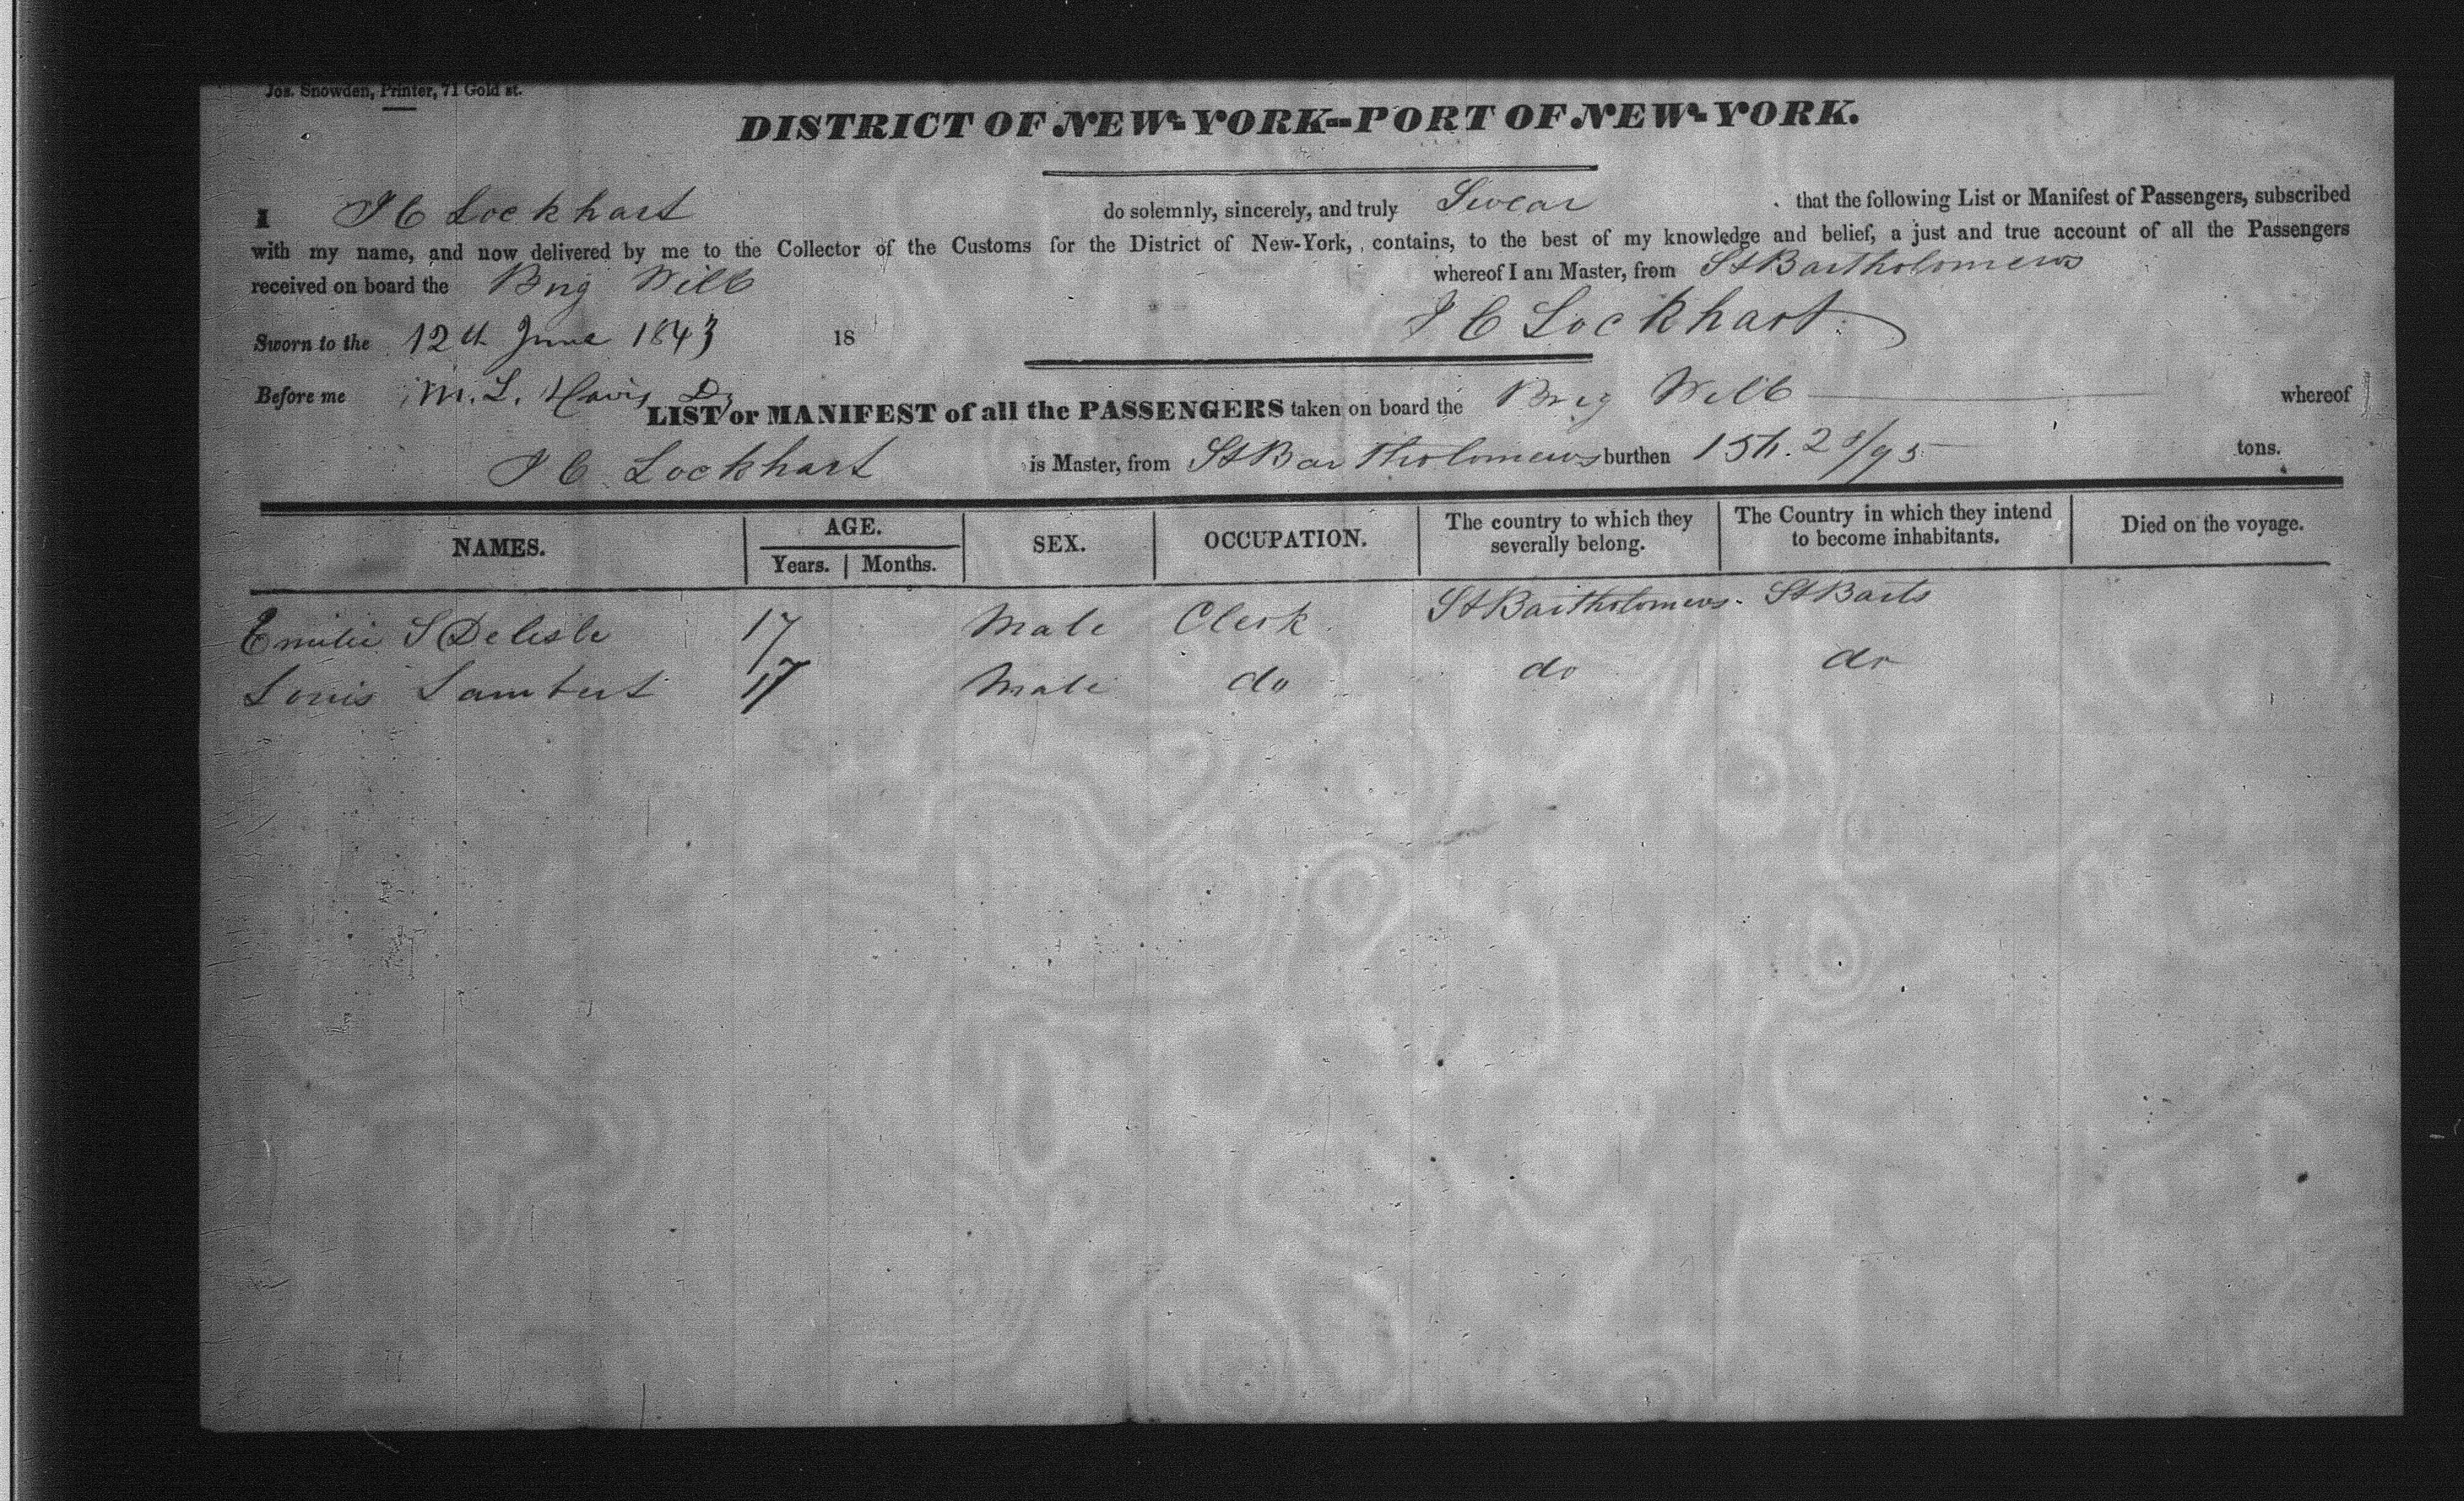 Jos. Snowden, Printer, 71 Gold st.
DISTRICT OF NEW-YORK--PORT OF NEW-YORK.
I J C Lockhart do solemnly, sincerely, and truly Swear that the following List or Manifest of Passengers, subscribed
with my name, and now delivered by me to the Collector of the Customs for the District of New-York, contains, to the best of my knowledge and belief, a just and true account of all the Passengers
received on board the Brig whereof I am Master, from St Bartholomews
J C Lockhart
Sworn to the 12th June 1843 18
Before me M. L. Davis
LIST or MANIFEST of all the PASSENGERS taken on board the Brig whereof
J C Lockhart is Master, from St Bartholomews burthen tons.
NAMES. AGE. SEX. OCCUPATION. The country to which they severally belong. The Country in which they intend to become inhabitants. Died on the voyage.
Years. Months.
Emilie S Delisle 17 Male Clerk St Bartholomews. St Barts
Louis Lambert 17 Male do do do